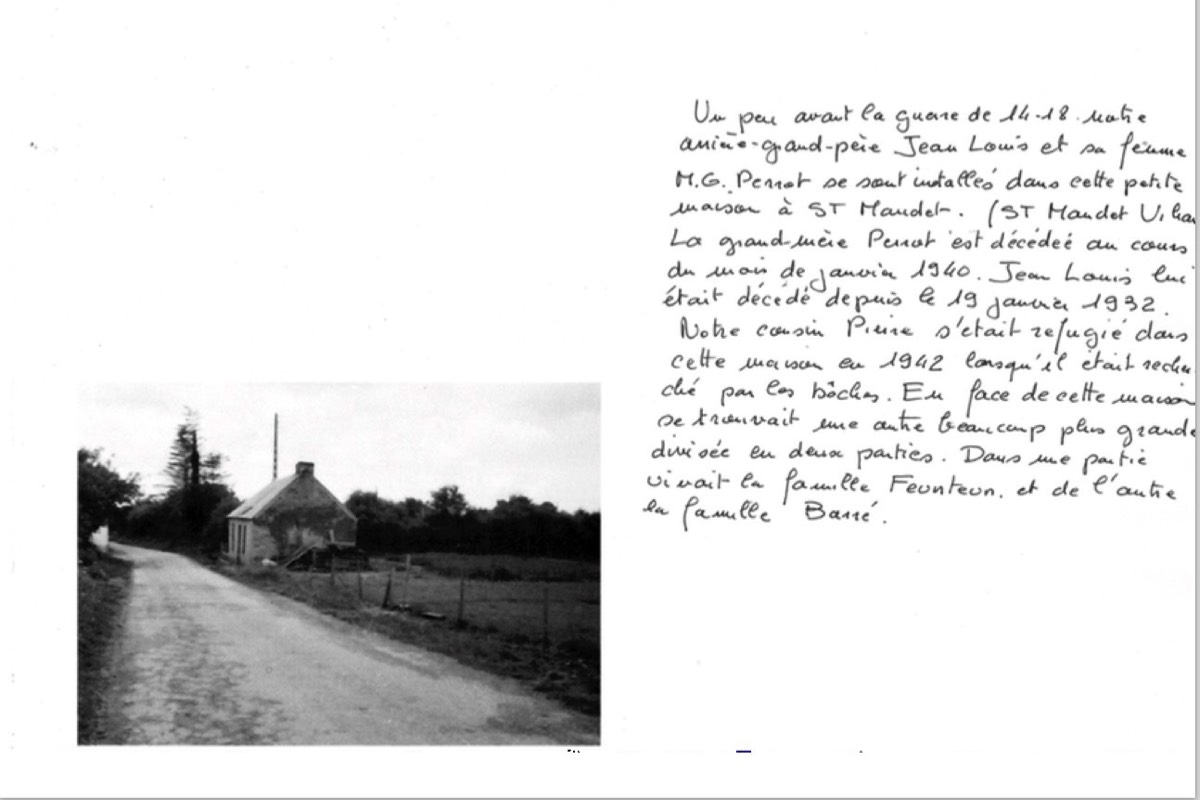 Un peu avant la guerre de 14-18. notre
arrière-grand-père Jean Louis et sa femme
M.G. Perrot se sont installés dans cette petite
maison à ST Mandet. (ST Mandet
La grand-mère Perrot est décédée au cours
du mois de janvier 1940. Jean Louis lui
était décédé depuis le 19 janvier 1932.
Notre cousin Pierre s'était refugié dans
cette maison en 1942 lorsqu'il était recher
ché par les bôches. En face de cette maison
se trouvait une autre beaucoup plus grande
divisée en deux parties. Dans une partie
vivait la famille Feunteun. et de l'autre
la famille Barré.